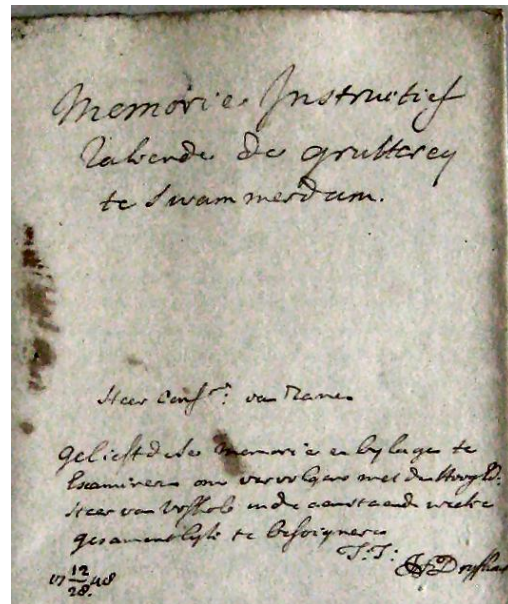 Memorie Instructief
Rakende de grutterey
te Swammerdam.
Heer Conf.r: van
Gelieft dese Memorie en bylagen te
Examineren om vervolgens met den Hoog Ed:
Heer van in de aenstaende weeke
gesamentlyk te besoigneren
T.T:
17 12/28. 48